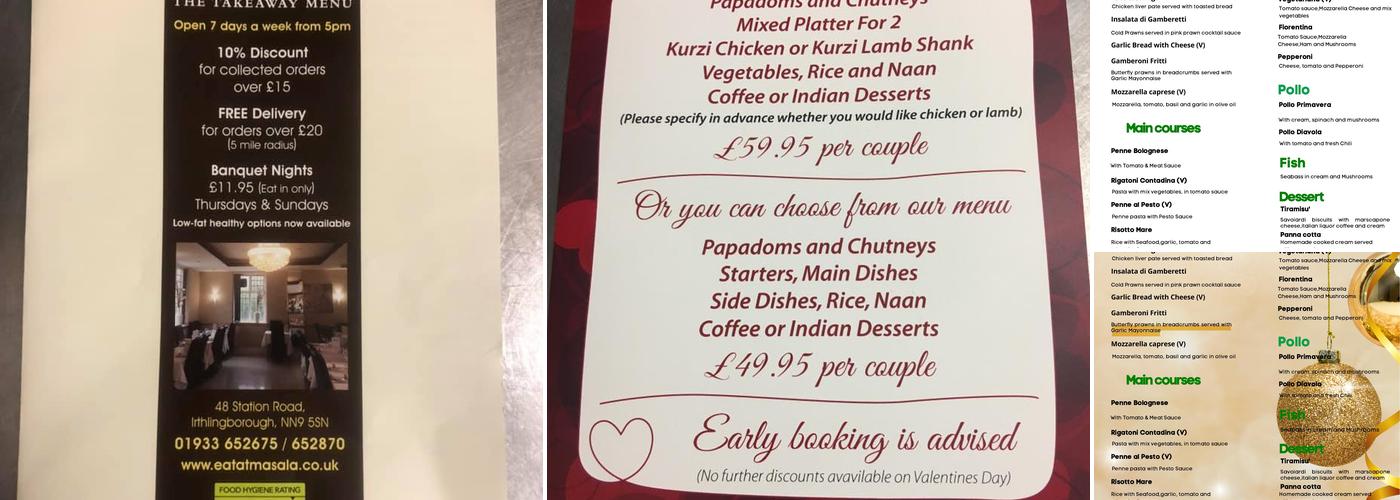 THE TAKEAWAY MENU
Open 7 days a week from 5pm
10% Discount
for collected orders
over £15
FREE Delivery
for orders over £20
(5 mile radius)
Banquet Nights
£11.95 (Eat in only)
Thursdays & Sundays
Low-fat healthy options now available
48 Station Road,
Irthlingborough, NN9 5SN
01933 652675 / 652870
www.eatatmasala.co.uk
FOOD HYGIENE RATING
Papadoms and Chutneys
Mixed Platter For 2
Kurzi Chicken or Kurzi Lamb Shank
Vegetables, Rice and Naan
Coffee or Indian Desserts
(Please specify in advance whether you would like chicken or lamb)
£59.95 per couple
Or you can choose from our menu
Papadoms and Chutneys
Starters, Main Dishes
Side Dishes, Rice, Naan
Coffee or Indian Desserts
£49.95 per couple
Early booking is advised
(No further discounts avavilable on Valentines Day)
Chicken liver pate served with toasted bread
Insalata di Gamberetti
Cold Prawns served in pink prawn cocktail sauce
Garlic Bread with Cheese (V)
Gamberoni Fritti
Butterfly prawns in breadcrumbs served with
Garlic Mayonnaise
Mozzarella caprese (V)
Mozzarella, tomato, basil and garlic in olive oil
Main courses
Penne Bolognese
With Tomato & Meat Sauce
Rigatoni Contadina (V)
Pasta with mix vegetables, in tomato sauce
Penne al Pesto (V)
Penne pasta with Pesto Sauce
Risotto Mare
Rice with Seafood,garlic, tomato and
Tomato sauce,Mozzarella Cheese and mix
vegetables
Fiorentina
Tomato Sauce,Mozzarella
Cheese,Ham and Mushrooms
Pepperoni
Cheese, tomato and Pepperoni
Pollo
Pollo Primavera
With cream, spinach and mushrooms
Pollo Diavola
With tomato and fresh Chili
Fish
Seabass in cream and Mushrooms
Dessert
Tiramisu'
Savoiardi biscuits with marscapone
cheese,italian liquor coffee and cream
Panna cotta
Homemade cooked cream served
Chicken liver pate served with toasted bread
Insalata di Gamberetti
Cold Prawns served in pink prawn cocktail sauce
Garlic Bread with Cheese (V)
Gamberoni Fritti
Butterfly prawns in breadcrumbs served with
Garlic Mayonnaise
Mozzarella caprese (V)
Mozzarella, tomato, basil and garlic in olive oil
Main courses
Penne Bolognese
With Tomato & Meat Sauce
Rigatoni Contadina (V)
Pasta with mix vegetables, in tomato sauce
Penne al Pesto (V)
Penne pasta with Pesto Sauce
Risotto Mare
Rice with Seafood,garlic, tomato and
Tomato sauce,Mozzarella Cheese and mix
vegetables
Fiorentina
Tomato Sauce,Mozzarella
Cheese,Ham and Mushrooms
Pepperoni
Cheese, tomato and Pepperoni
Pollo
Pollo Primavera
With cream, spinach and mushrooms
Pollo Diavola
With tomato and fresh Chili
Fish
Seabass in cream and Mushrooms
Dessert
Tiramisu'
Savoiardi biscuits with marscapone
cheese,italian liquor coffee and cream
Panna cotta
Homemade cooked cream served